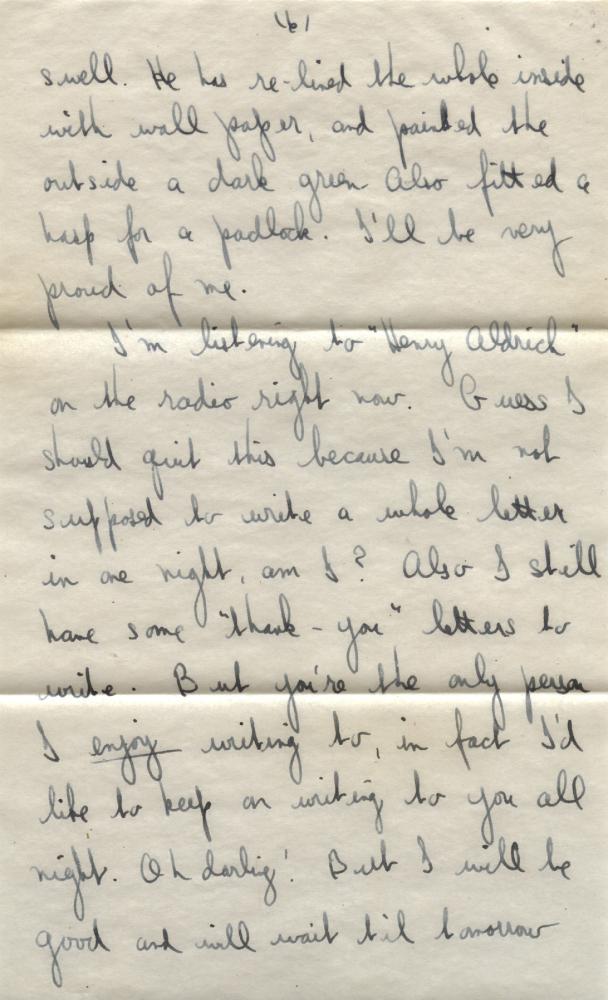 swell. He has re-lined the whole inside
with wall paper, and painted the
outside a dark green Also fitted a
hasp for a padlock. I'll be very
proud of me.
I'm listening to "Henry Aldrich"
on the radio right now. Guess I
should quit this because I'm not
supposed to write a whole letter
in one night, am I? Also I still
have some "thank-you" letters to
write. But you're the only person
I enjoy writing to, in fact I'd
like to keep on writing to you all
night. Oh darlig! But I will be
good and will wait til tomorrow